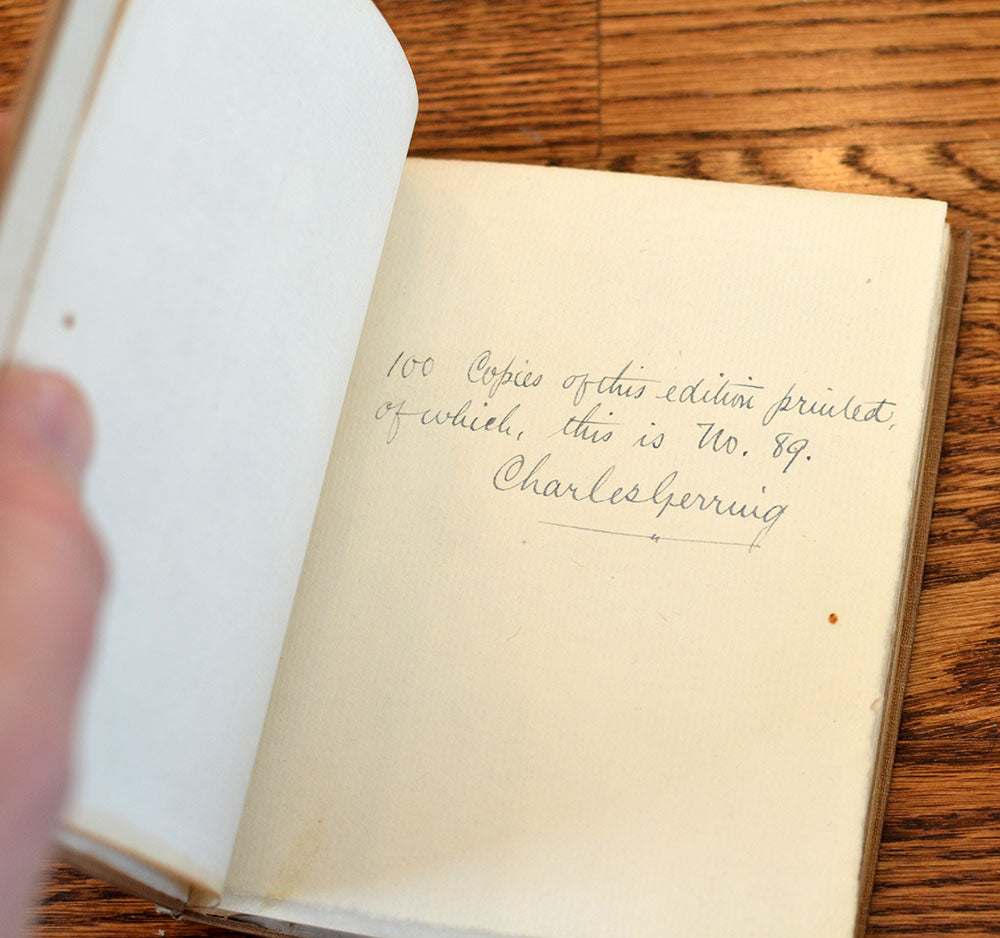 100 Copies of this edition printed,
of which, this is No. 89.
Charles Gerring